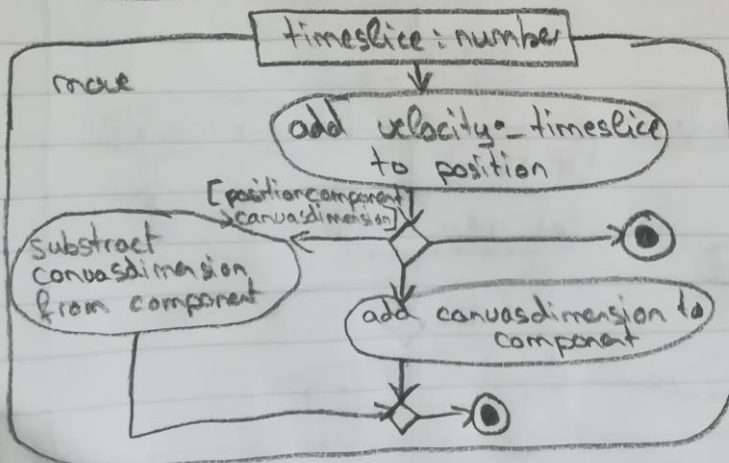 timeslice : number
move
add velocity*_timeslice
to position
[positioncomponent
>canvasdimension]
substract
canvasdimension
from component
add canvasdimension to
component